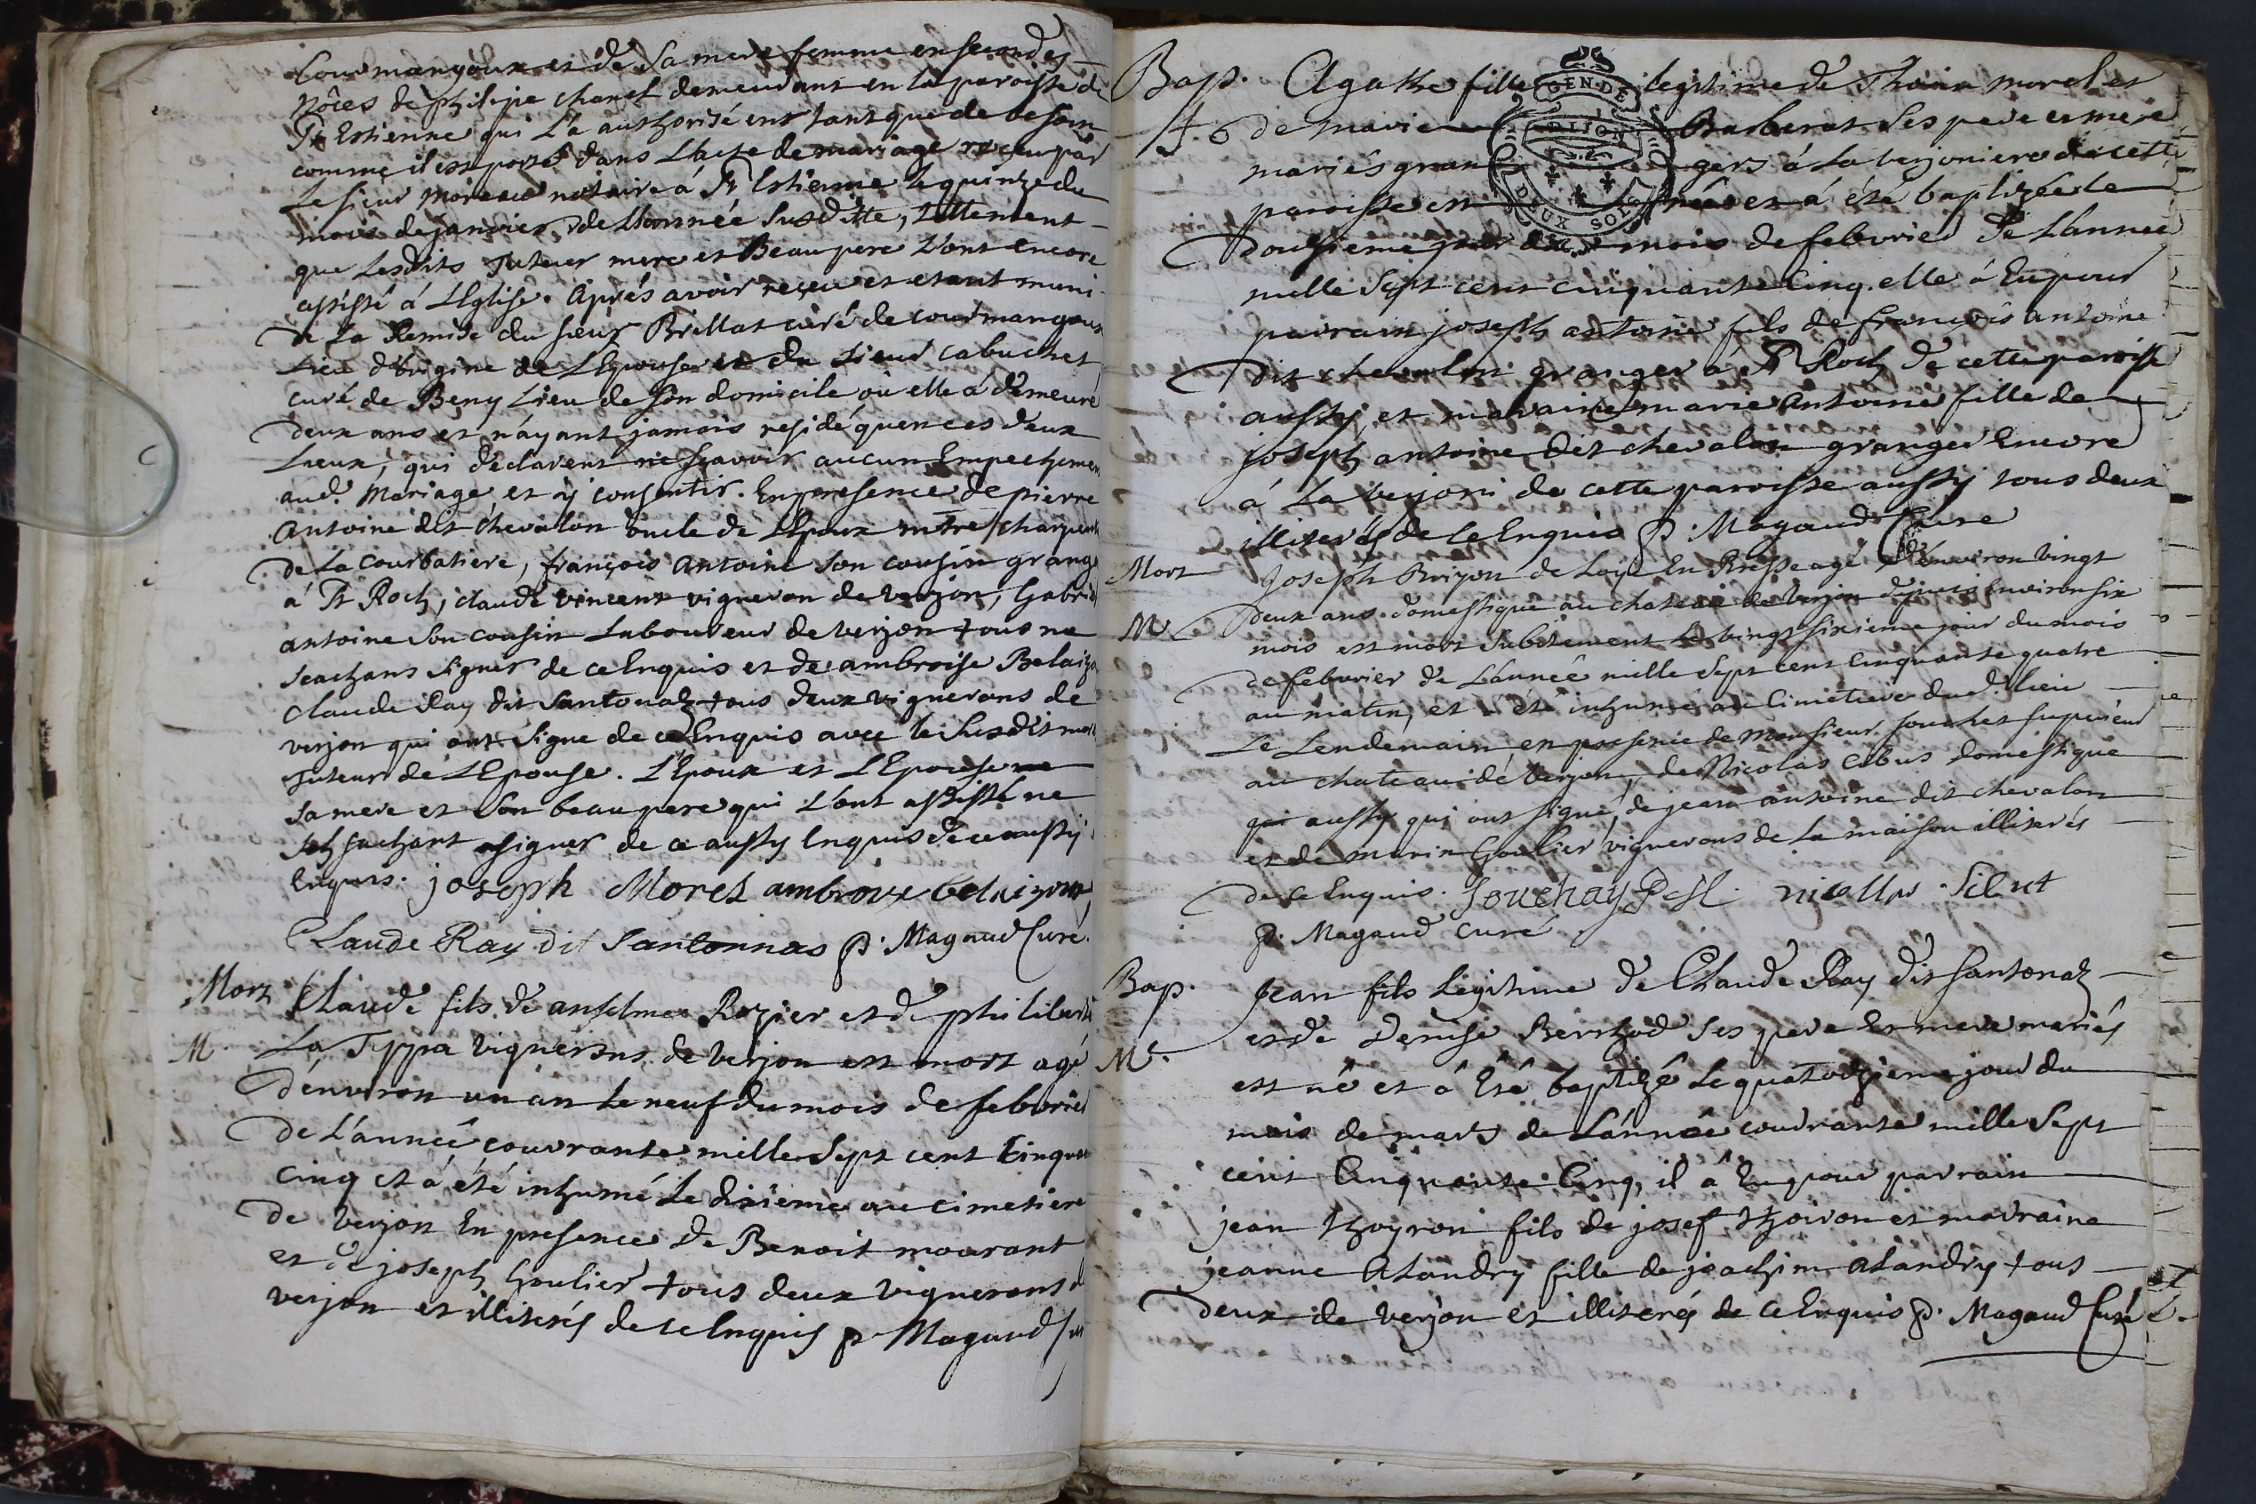 Courmangoux et de Sa mere femme en secondes
Nôces de philipe chanel demeurant en la paroisse de
St Estienne qui L'a authorisé ent tant que de besoin
comme il est porté dans L'acte de mariage receu par
Le sieur Moreau notaire à St Estienne le quinze du
mois de janvier de L'année Susditte, tellement
que Lesdits Tuteur mere et Beaupere L'ont encore
assisté à L'Eglise. Aprés avoir reçeu et etant muni
de La Remise du sieur Brillat curé de courmangoux
Lieu d'origine de L'Epouse et du sieur cabuchet
curé de Beny Lieu de son domicile où elle a demeuré
deux ans et n'ayant jamais residé qu'en ces deux
Lieux, qui declarent ne sçavoir aucun Empechemen
aud. Mariage et y consentir. En presence de pierre
Antoine dit chevalon oncle de L'Epoux mtre charpent
de la Courbatiere, françois Antoine son cousin grang
à St Roch, claude vincent vigneron de verjon, Gabriel
antoine Son cousin Laboureur de verjon tous ne
Scachans Signer de ce Enquis et de ambroise Belaizo
Claude Ray dit Santonaz tous deux vignerons de
verjon qui ont Signe de ce Enquis avec le Susdit mor
Tuteur de L'Epouse. L'Epoux et L'Epouse
Sa mere et Son beau pere qui L'ont assisté ne
sachant signer de ce aussy Enquis de ce aussy
Enquis. joseph Morel ambroix belaizon
Claude Ray dit Santonnas p. Magaud Curé.
Mort Claude fils de anselme Rozier et de philiberte
M. La Teppa vignerons de verjon est mort agé
d'environ un an Le neuf du mois de febvrier
de L'année courrante mille Sept cent Cinquan
cinq et à été inhumé Le dixieme au cimetiere
de verjon En presence de Benoit mourant
et de joseph Goulier tous deux vignerons d
verjon et illiterés de ce Enquis p. Magaud Cur
Bap. Agathe fille legitime de Thoine morel et
de marie Barberat Ses pere et mere
mariés gran gers à La verjoniere de cette
paroisse est née et à été baptizée le
Douzieme jour du mois de febvrier de L'année
mille Sept cent cinquante Cinq. elle à Eu pour
parrain joseph antoine fils de françois antoine
dit chevalon granger à St Roch de cette paroisse
aussy, et maraine marie Antoine fille de
joseph antoine dit chevalon granger Encore
à La verjoni de cette paroisse aussy tous deux
illiterés de ce Enquis p. Magaud Cure
Mort Joseph de En Bresse agé d'environ vingt
M. deux ans domestique au chateau de verjon depuis Environ six
mois est mort Subitement Le vingt sixieme jour du mois
de febvrier de L'année mille Sept cent Cinquante quatre
au matin, et a été inhumé au Cimetiere dud. lieu
Le Lendemain en presence de Monsieur Souchet superieur
au chateau de verjon, de Nicolas Cibus domestique
aussy qui ont signé, de jean antoine dit chevalon
et de marin Goulier vignerons de La maison illiterés
de ce Enquis. Souchay nicollas Silut
p. Magaud curé
Bap. Jean fils Legitime de Claude Ray dit Santonaz
et de Denise Berthod Ses pere et mere mariés
Me. est né et à Eté baptizé Le quatorzieme jour du
mois de mars de L'année courrante mille Sept
cent Cinquante Cinq, il â Eu pour parrain
jean thoyron fils de josef thoiron et maraine
jeanne Alandry fille de joachim alandry tous
deux de verjon et illiterés de ce Enquis p. Magaud Curé
GEN. DE
DIJON
DEUX SOLS